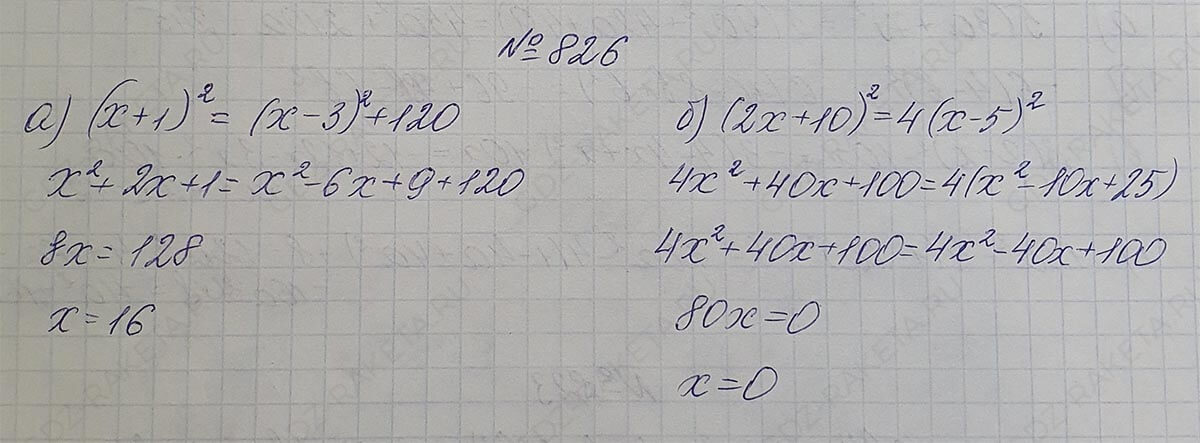 №826
а) (x+1)² = (x-3)²+120
x²+2x+1=x²-6x+9+120
8x=128
x=16
б) (2x+10)²=4(x-5)²
4x²+40x+100=4(x²-10x+25)
4x²+40x+100=4x²-40x+100
80x=0
x=0